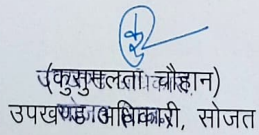 (कुसुमलता चौहान)
उपखण्ड अधिकारी, सोजत